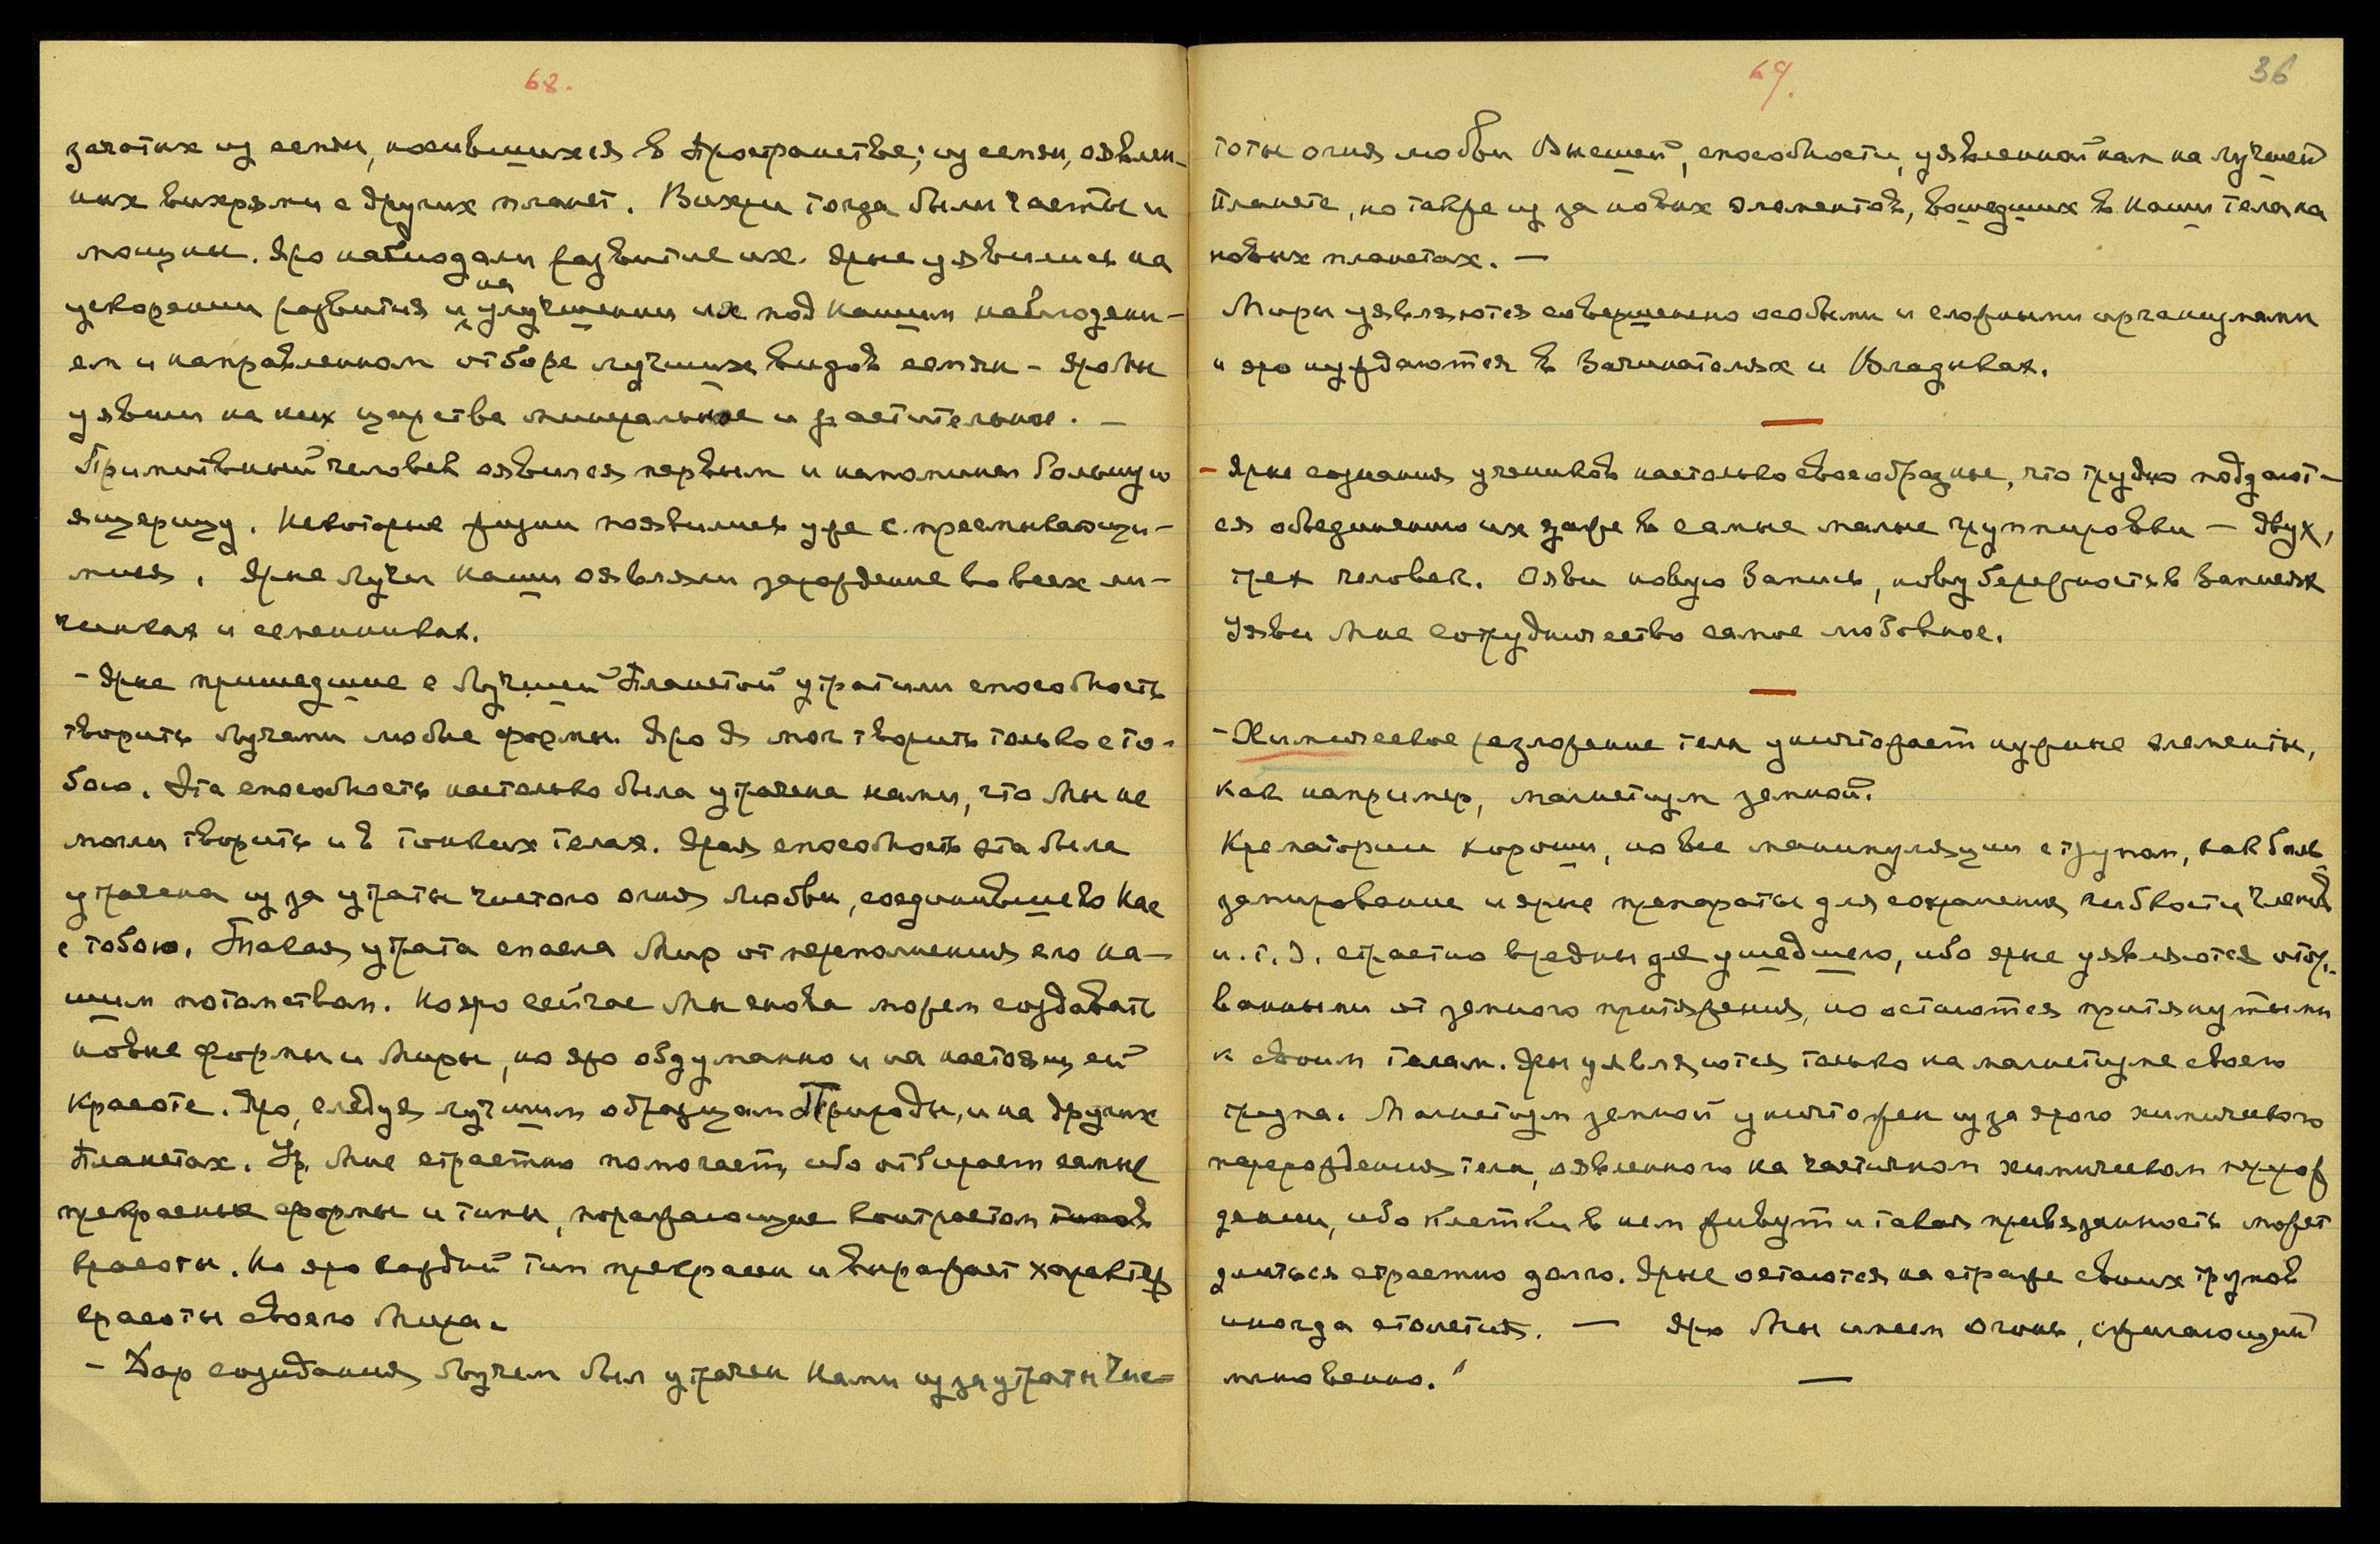 68.
зачатых из семян, носившихся в Пространстве; из семян, оявлен-
ных вихрями с других планет. Вихри тогда были часты и
мощны. Яро наблюдали развитие их. Ярые уявились на
ускорении развития и на улучшении их под нашим наблюдени-
ем и направленном отборе лучших видов семян – яро Мы
уявили на них царства минеральное и растительное. –
Примитивный человек оявился первым и напоминал большую
ящерицу. Некоторые жизни появились уже с пресмыкающи-
мися. Ярые Лучи Наши оявляли зарождение во всех ли-
чинках и семенниках.
– Ярые пришедшие с Лучшей Планетой утратили способность
творить Лучами любые формы. Яро Я мог творить только с то-
бою. Эта способность настолько была утрачена нами, что Мы не
могли творить и в тонких телах. Ярая способность эта была
утрачена из за утраты чистого огня Любви, соединившего Нас
с тобою. Такая утрата спасла Мир от переполнения его на-
шим потомством. Но яро сейчас Мы снова можем создавать
новые формы и Миры, но яро обдуманно и на настоящей
Красоте. Яро, следуя лучшим образцам Природы, и на других
Планетах. Ур. Мне страстно помогает, ибо отбирает самые
прекрасные формы и типы, поражающие контрастом типов
красоты. Но яро каждый тип прекрасен и выражает характер
красоты своего Мира.
– Дар созидания Лучем был утрачен Нами из за утраты Чис-
69.
36
тоты огня любви Высшей, способности, уявленной нам на лучшей
Планете, но также из за новых элементов, вошедших в Наши тела на
новых планетах. –
Миры уявляются совершенно особыми и сложными организмами
и яро нуждаются в Зачинателях и Владыках.
– Ярые сознания учеников настолько своеобразные, что трудно поддают-
ся объединению их даже в самые малые группировки – двух,
трех человек. Ояви новую Запись, нову бережность в Записях
Уяви Мне сотрудничество самое любовное.
– Химическое разложение тела уничтожает нужные элементы,
как например, магнетизм земной.
Крематории хороши, но все манипуляции с трупом, как баль-
замирование и ярые препараты для сохранения гибкости членов
и. т. д. страстно вредны для ушедшего, ибо ярые уявляются отор-
ванными от земного притяжения, но остаются притянутыми
к своим телам. Яры уявляются только на магнетизме своего
трупа. Магнетизм земной уничтожен из за ярого химического
перерождения тела, оявленного на частичном химическом перерож
дении, ибо клетки в нем живут и такая привязанность может
длиться страстно долго. Ярые остаются на страже своих трупов
иногда столетия. – Яро Мы имеем Огонь, сжигающий
мгновенно."